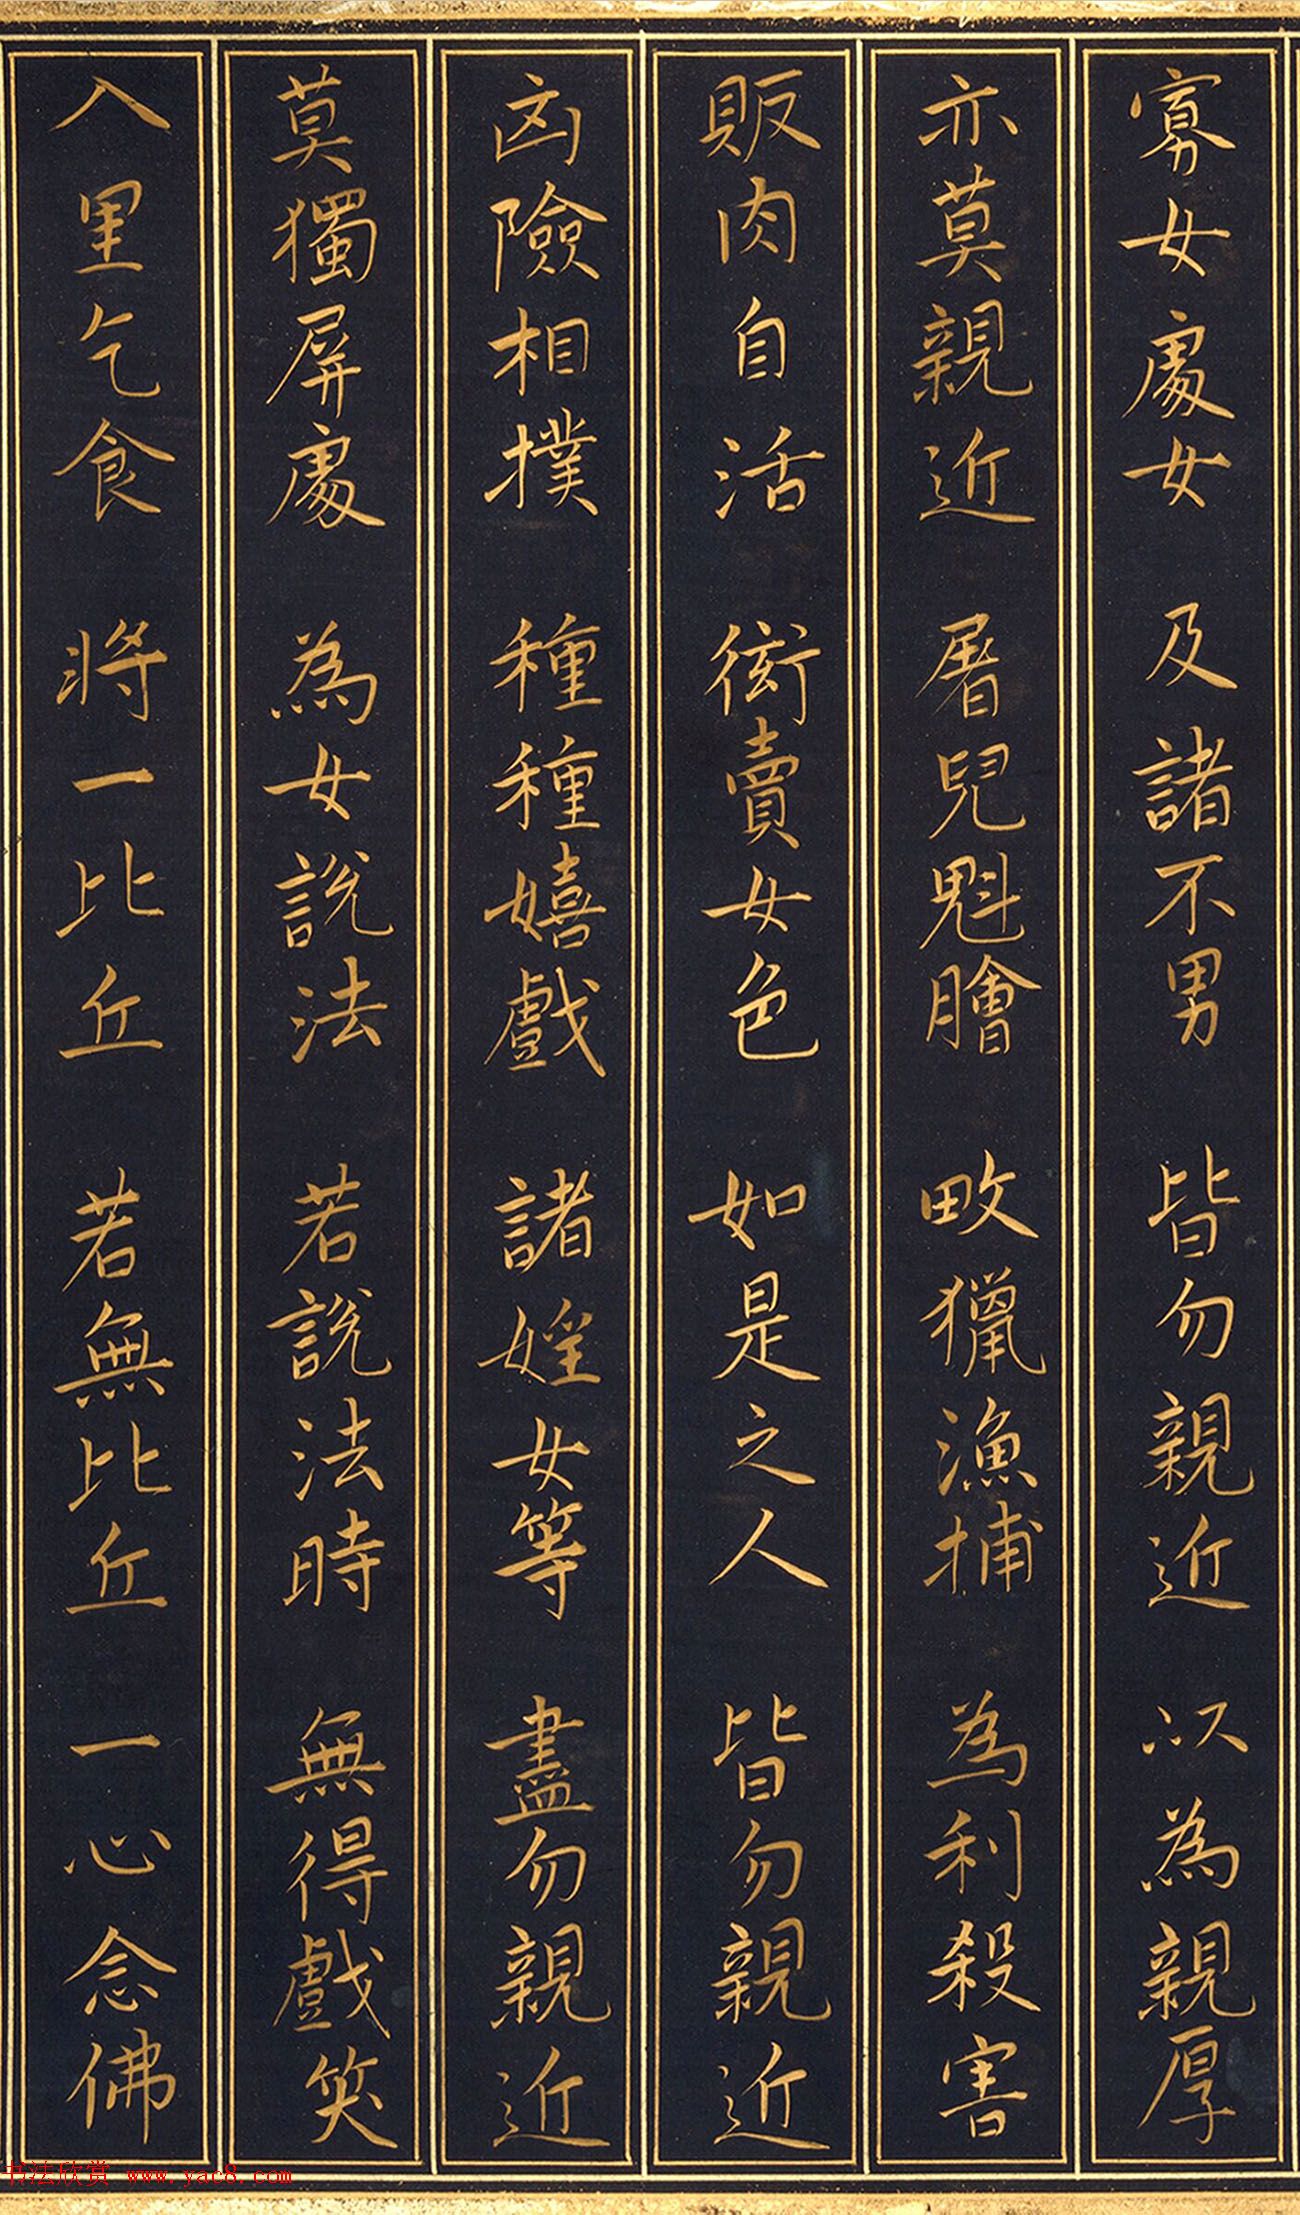 寡女處女　及諸不男　皆勿親近　以為親厚
亦莫親近　屠兒魁膾　畋獵漁捕　為利殺害
販肉自活　衒賣女色　如是之人　皆勿親近
凶險相撲　種種嬉戲　諸婬女等　盡勿親近
莫獨屏處　為女說法　若說法時　無得戲笑
入里乞食　將一比丘　若無比丘　一心念佛
书法欣赏 www.yac8.com